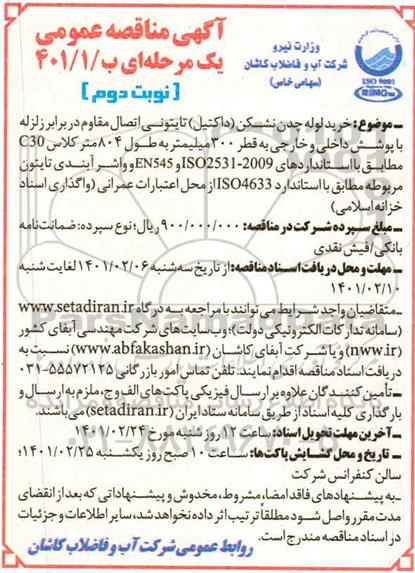 آگهی مناقصه عمومی
یک مرحله‌ای ب/۴۰۱/۱/۱
[نوبت دوم]
وزارت نیرو
شرکت آب و فاضلاب کاشان
(سهامی خاص)
ISO 9001
ـ موضوع: خرید لوله چدن نشکن (داکتیل) تایتونی اتصال مقاوم در برابر زلزله
با پوشش داخلی و خارجی به قطر ۳۰۰ میلیمتر به طول ۸۰۴ متر کلاس C30
مطابق با استانداردهای ISO2531-2009 و EN545 و واشر آبندی تایتون
مربوطه مطابق با استاندارد ISO4633 از محل اعتبارات عمرانی (واگذاری اسناد
خزانه اسلامی)
ـ مبلغ سپرده شرکت در مناقصه: ۹۰۰/۰۰۰/۰۰۰ ریال؛ نوع سپرده: ضمانت‌نامه
بانکی/فیش نقدی
ـ مهلت و محل دریافت اسناد مناقصه: از تاریخ سه‌شنبه ۱۴۰۱/۰۲/۰۶ لغایت شنبه
۱۴۰۱/۰۲/۱۰
ـ متقاضیان واجد شرایط می‌توانند با مراجعه به درگاه www.setadiran.ir
(سامانه تدارکات الکترونیکی دولت)؛ وب‌سایت‌های شرکت مهندسی آبفای کشور
(nww.ir) و یا شرکت آبفای کاشان (www.abfakashan.ir) نسبت به
دریافت اسناد مناقصه اقدام نمایند. تلفن تماس امور بازرگانی ۵۵۵۷۲۱۲۵-۰۳۱
ـ تأمین کنندگان علاوه بر ارسال فیزیکی پاکت‌های الف و ج، ملزم به ارسال و
بارگذاری کلیه اسناد از طریق سامانه ستاد ایران (setadiran.ir) می‌باشند.
ـ آخرین مهلت تحویل اسناد: ساعت ۱۲ روز شنبه مورخ ۱۴۰۱/۰۲/۲۴
ـ تاریخ و محل گشایش پاکت‌ها: ساعت ۱۰ صبح روز یکشنبه ۱۴۰۱/۰۲/۲۵؛
سالن کنفرانس شرکت
ـ به پیشنهادهای فاقد امضا، مشروط، مخدوش و پیشنهاداتی که بعد از انقضای
مدت مقرر واصل شود مطلقاً ترتیب اثر داده نخواهد شد، سایر اطلاعات و جزئیات
در اسناد مناقصه مندرج است.
روابط عمومی شرکت آب و فاضلاب کاشان